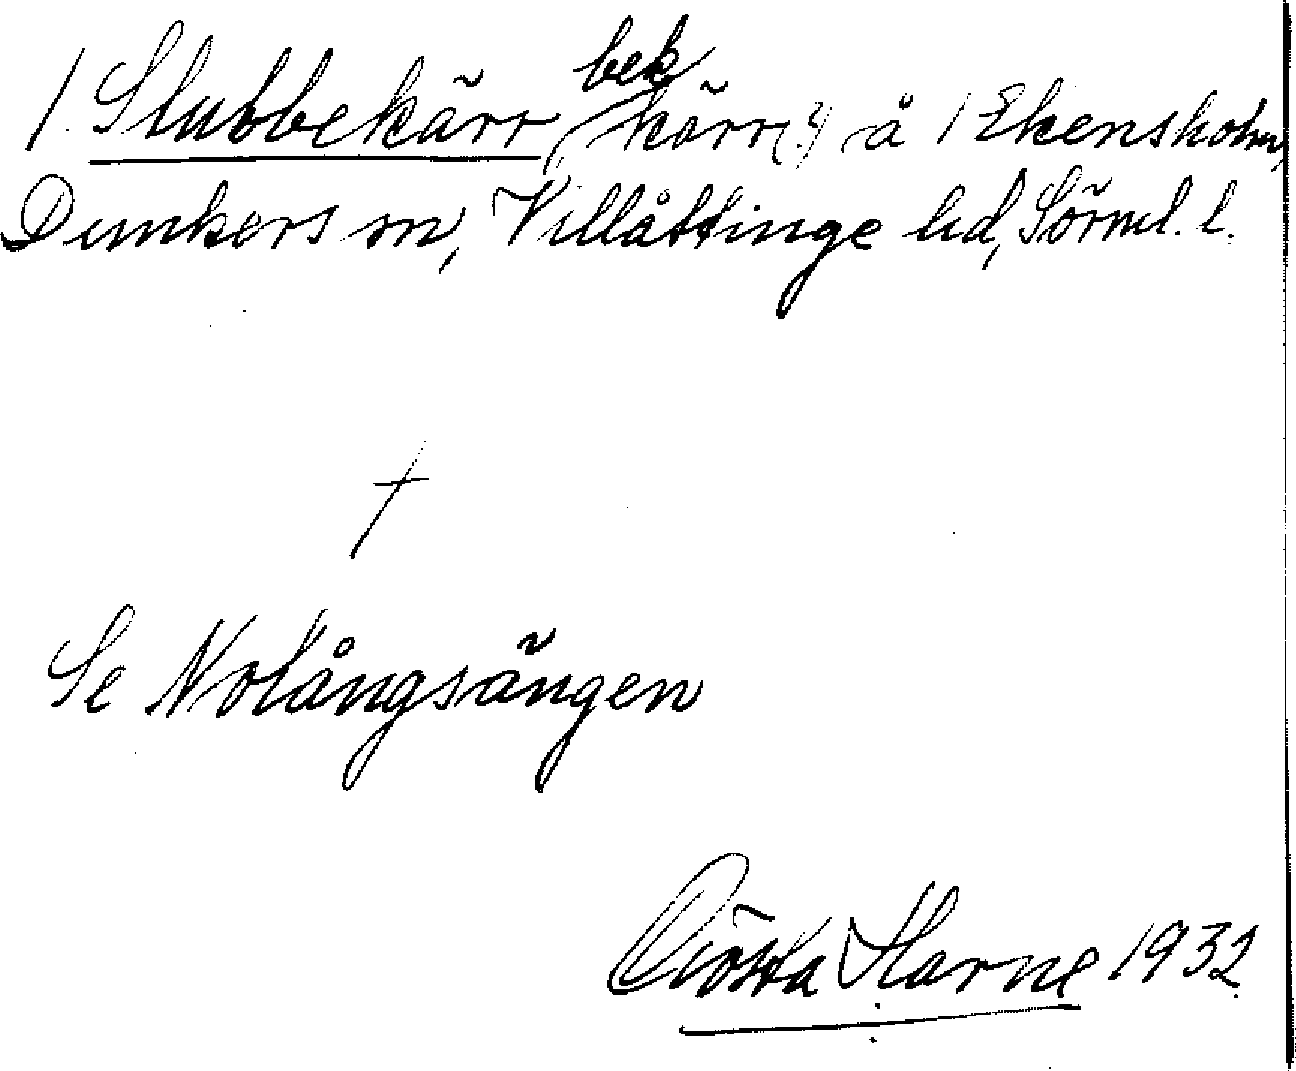 / Slubbekärr, bek kärr(?) å / Ekensholm,
Dunkers sn, Villåttinge hd, Sörml. l.
†
Se Nolångsängen
Gösta Harne 1932